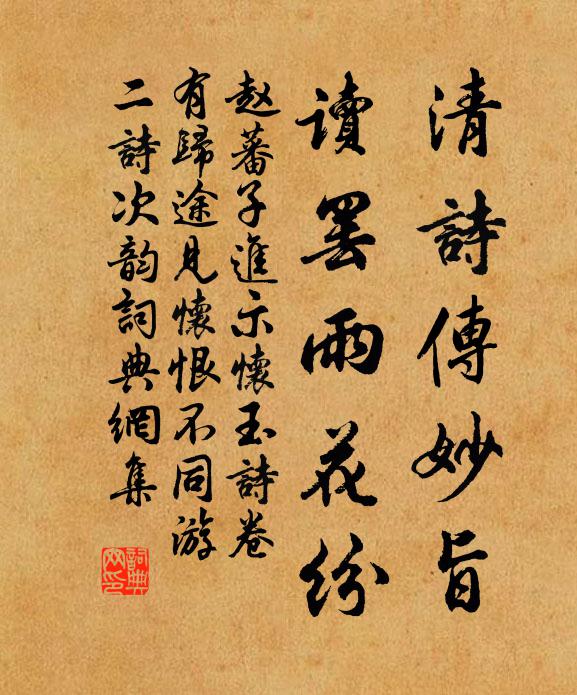 清詩傳妙旨
讀罷雨花紛
赵蕃子進示懷玉詩卷
有歸途見懷恨不同游
二詩次韵詞典網集
詞典网印